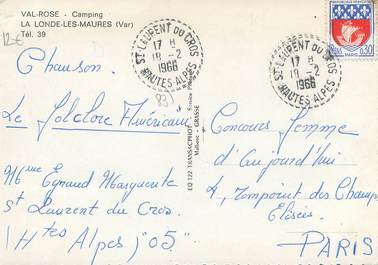 VAL-ROSE - Camping
LA LONDE-LES-MAURES (Var)
Tél. 39
12€
ST LAURENT DU CROS
17 H
18-2
1966
HAUTES-ALPES
ST LAURENT DU CROS
17 H
18-2
1966
HAUTES-ALPES
0,30
Chanson.
Le folclore Américain
Mme Eynaud Marguerite
St Laurent du Cros
(Htes Alpes) "05"
EO 122 TRANSACPHOT
Mallone - GRASSE
Concours femme
d'aujourd'hui
4, rompoint des Champs
Elisées
PARIS